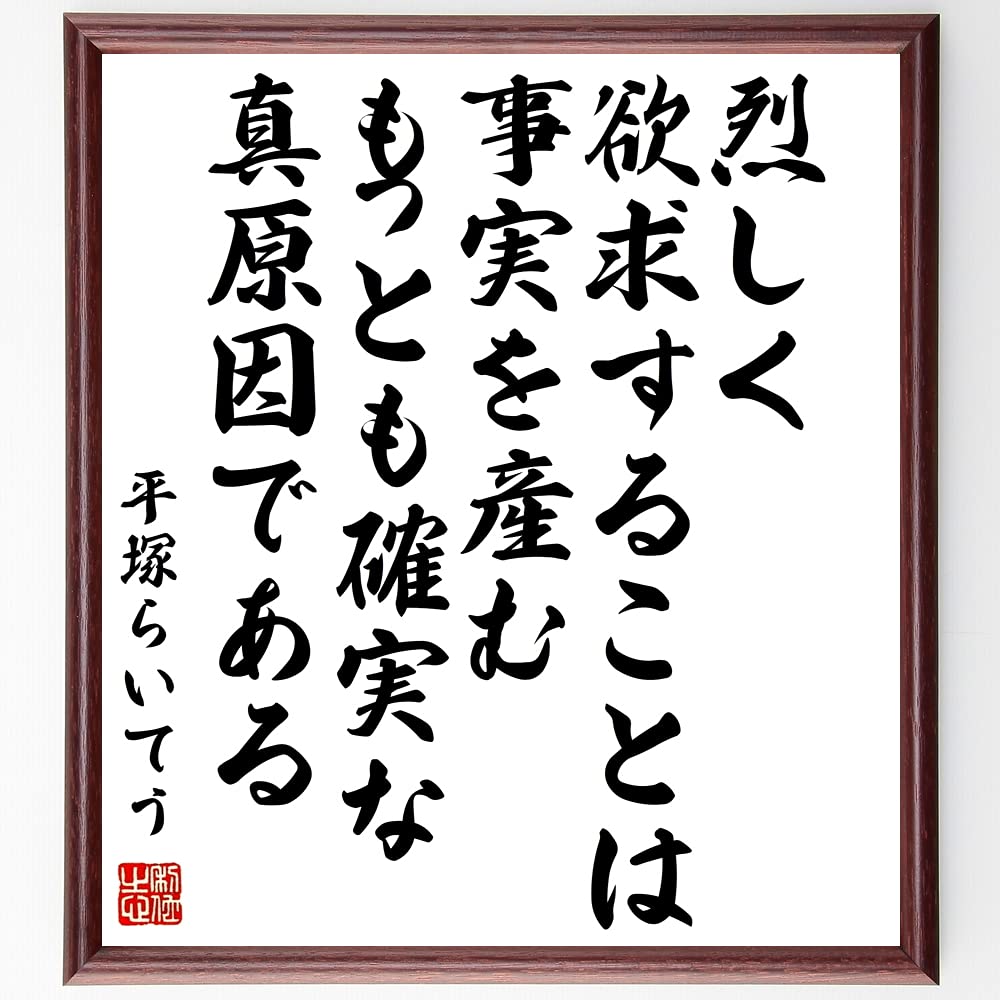 烈しく
欲求することは
事実を産む
もっとも確実な
真原因である
平塚らいてう